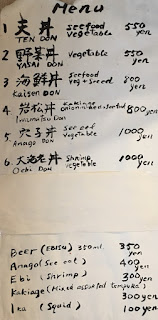 Menu
1 天丼 seefood 550
TEN DON vegetable yen
2 野菜丼 vegetable 550
YASAI DON yen
3 海鮮丼 seefood 800
Kaisen DON veg+seeed yen
4 岩松丼 Kakiage 800 yen
Iwamatsu DON
5 穴子丼 See eel 1000
Anago DON vegetable yen
6 大老丼 Shrimp 1000
Ochi DON vegetable yen
Beer (EBISU) 350ml. 350 yen
Anago (See eel) 400 yen
Ebi (Shrimp) 300 yen
Kakiage (Mixed assorted tempura) 300 yen
Ika (Squid) 100 yen